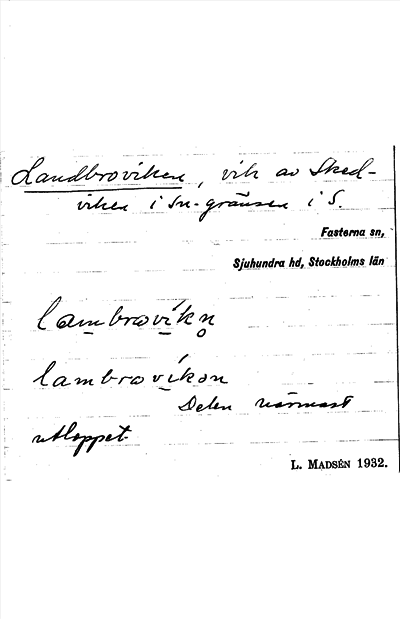 Landbroviken, vik av Sked-
viken i sn-gränsen i S.
Fasterna sn,
Sjuhundra hd, Stockholms län
lambrovíkn̥
lambrovíkɔn
Delen närmast
utloppet.
L. MADSÉN 1932.